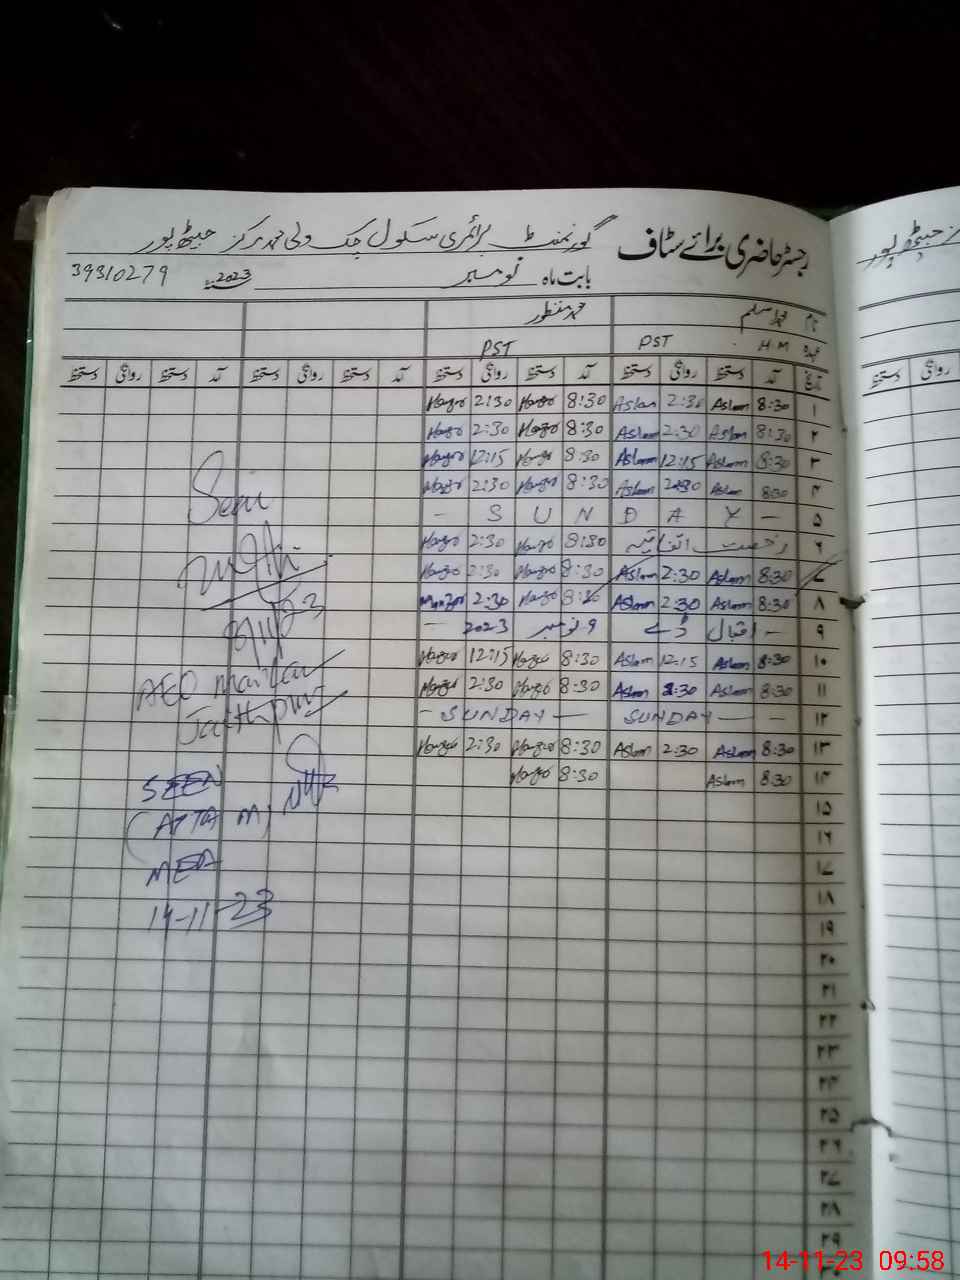 رجسٹر حاضری برائے سٹاف گورنمنٹ پرائمری سکول چک ولی محمد مرکز جیٹھ پور
بابت ماہ نومبر 2023 39310279
نام محمد اسلم محمد منظور
عہدہ H M PST PST
تاریخ آمد دستخط روانگی دستخط آمد دستخط روانگی دستخط آمد دستخط روانگی دستخط آمد دستخط روانگی دستخط
۱ 8:30 Aslam 2:30 Aslam 8:30 2:30
۲ 8:30 Aslam 2:30 Aslam 8:30 2:30
۳ 8:30 Aslam 12:15 Aslam 8:30 12:15
۴ 8:30 Aslam 2:30 Aslam 8:30 2:30
۵ - S U N D A Y -
۶ رخصت اتفاقیہ 8:30 2:30
۷ 8:30 Aslam 2:30 Aslam 8:30 2:30
۸ 8:30 Aslam 2:30 Aslam 8:30 2:30 Manzoor
۹ - اقبال ڈے ۹ نومبر 2023 -
۱۰ 8:30 Aslam 12:15 Aslam 8:30 12:15
۱۱ 8:30 Aslam 2:30 Aslam 8:30 2:30
۱۲ SUNDAY - - - SUNDAY -
۱۳ 8:30 Aslam 2:30 Aslam 8:30 2:30
۱۴ 8:30 Aslam 8:30
۱۵
۱۶
۱۷
۱۸
۱۹
۲۰
۲۱
۲۲
۲۳
۲۴
۲۵
۲۶
۲۷
۲۸
۲۹
Seen
AEO Markaz
Jaithpur
SEEN
(ATTA M)
MEA
14-11-23
جیٹھ پور
روانگی دستخط
14-11-23 09:58